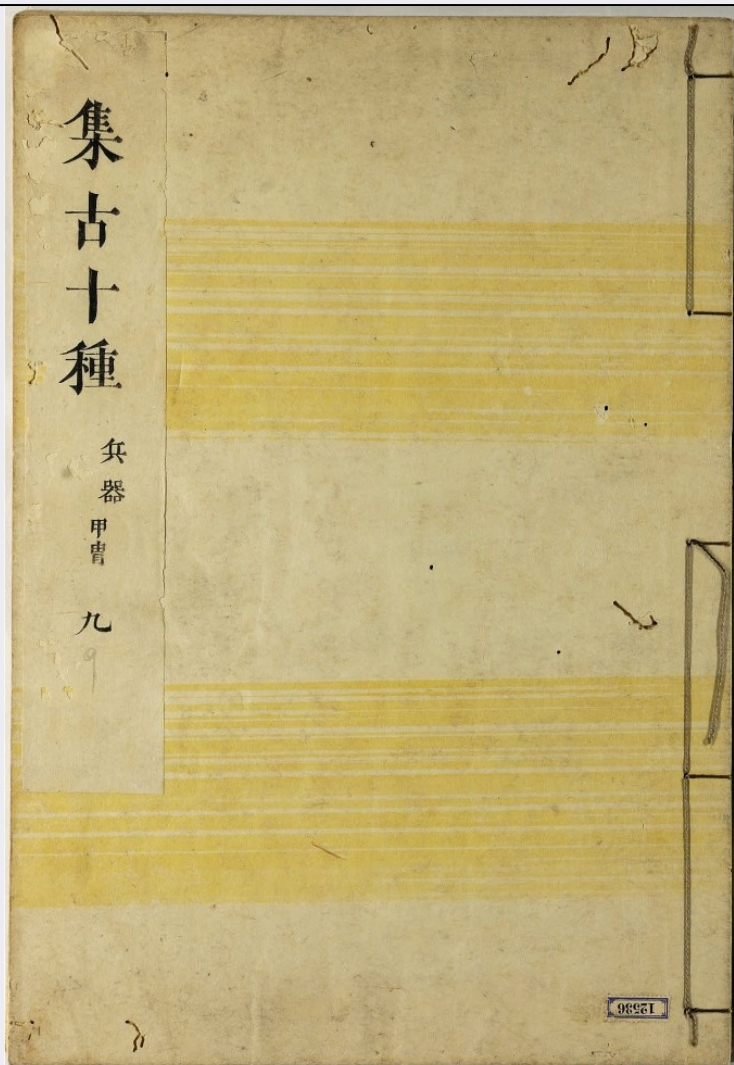 集古十種
兵器
甲冑
九
9
12536